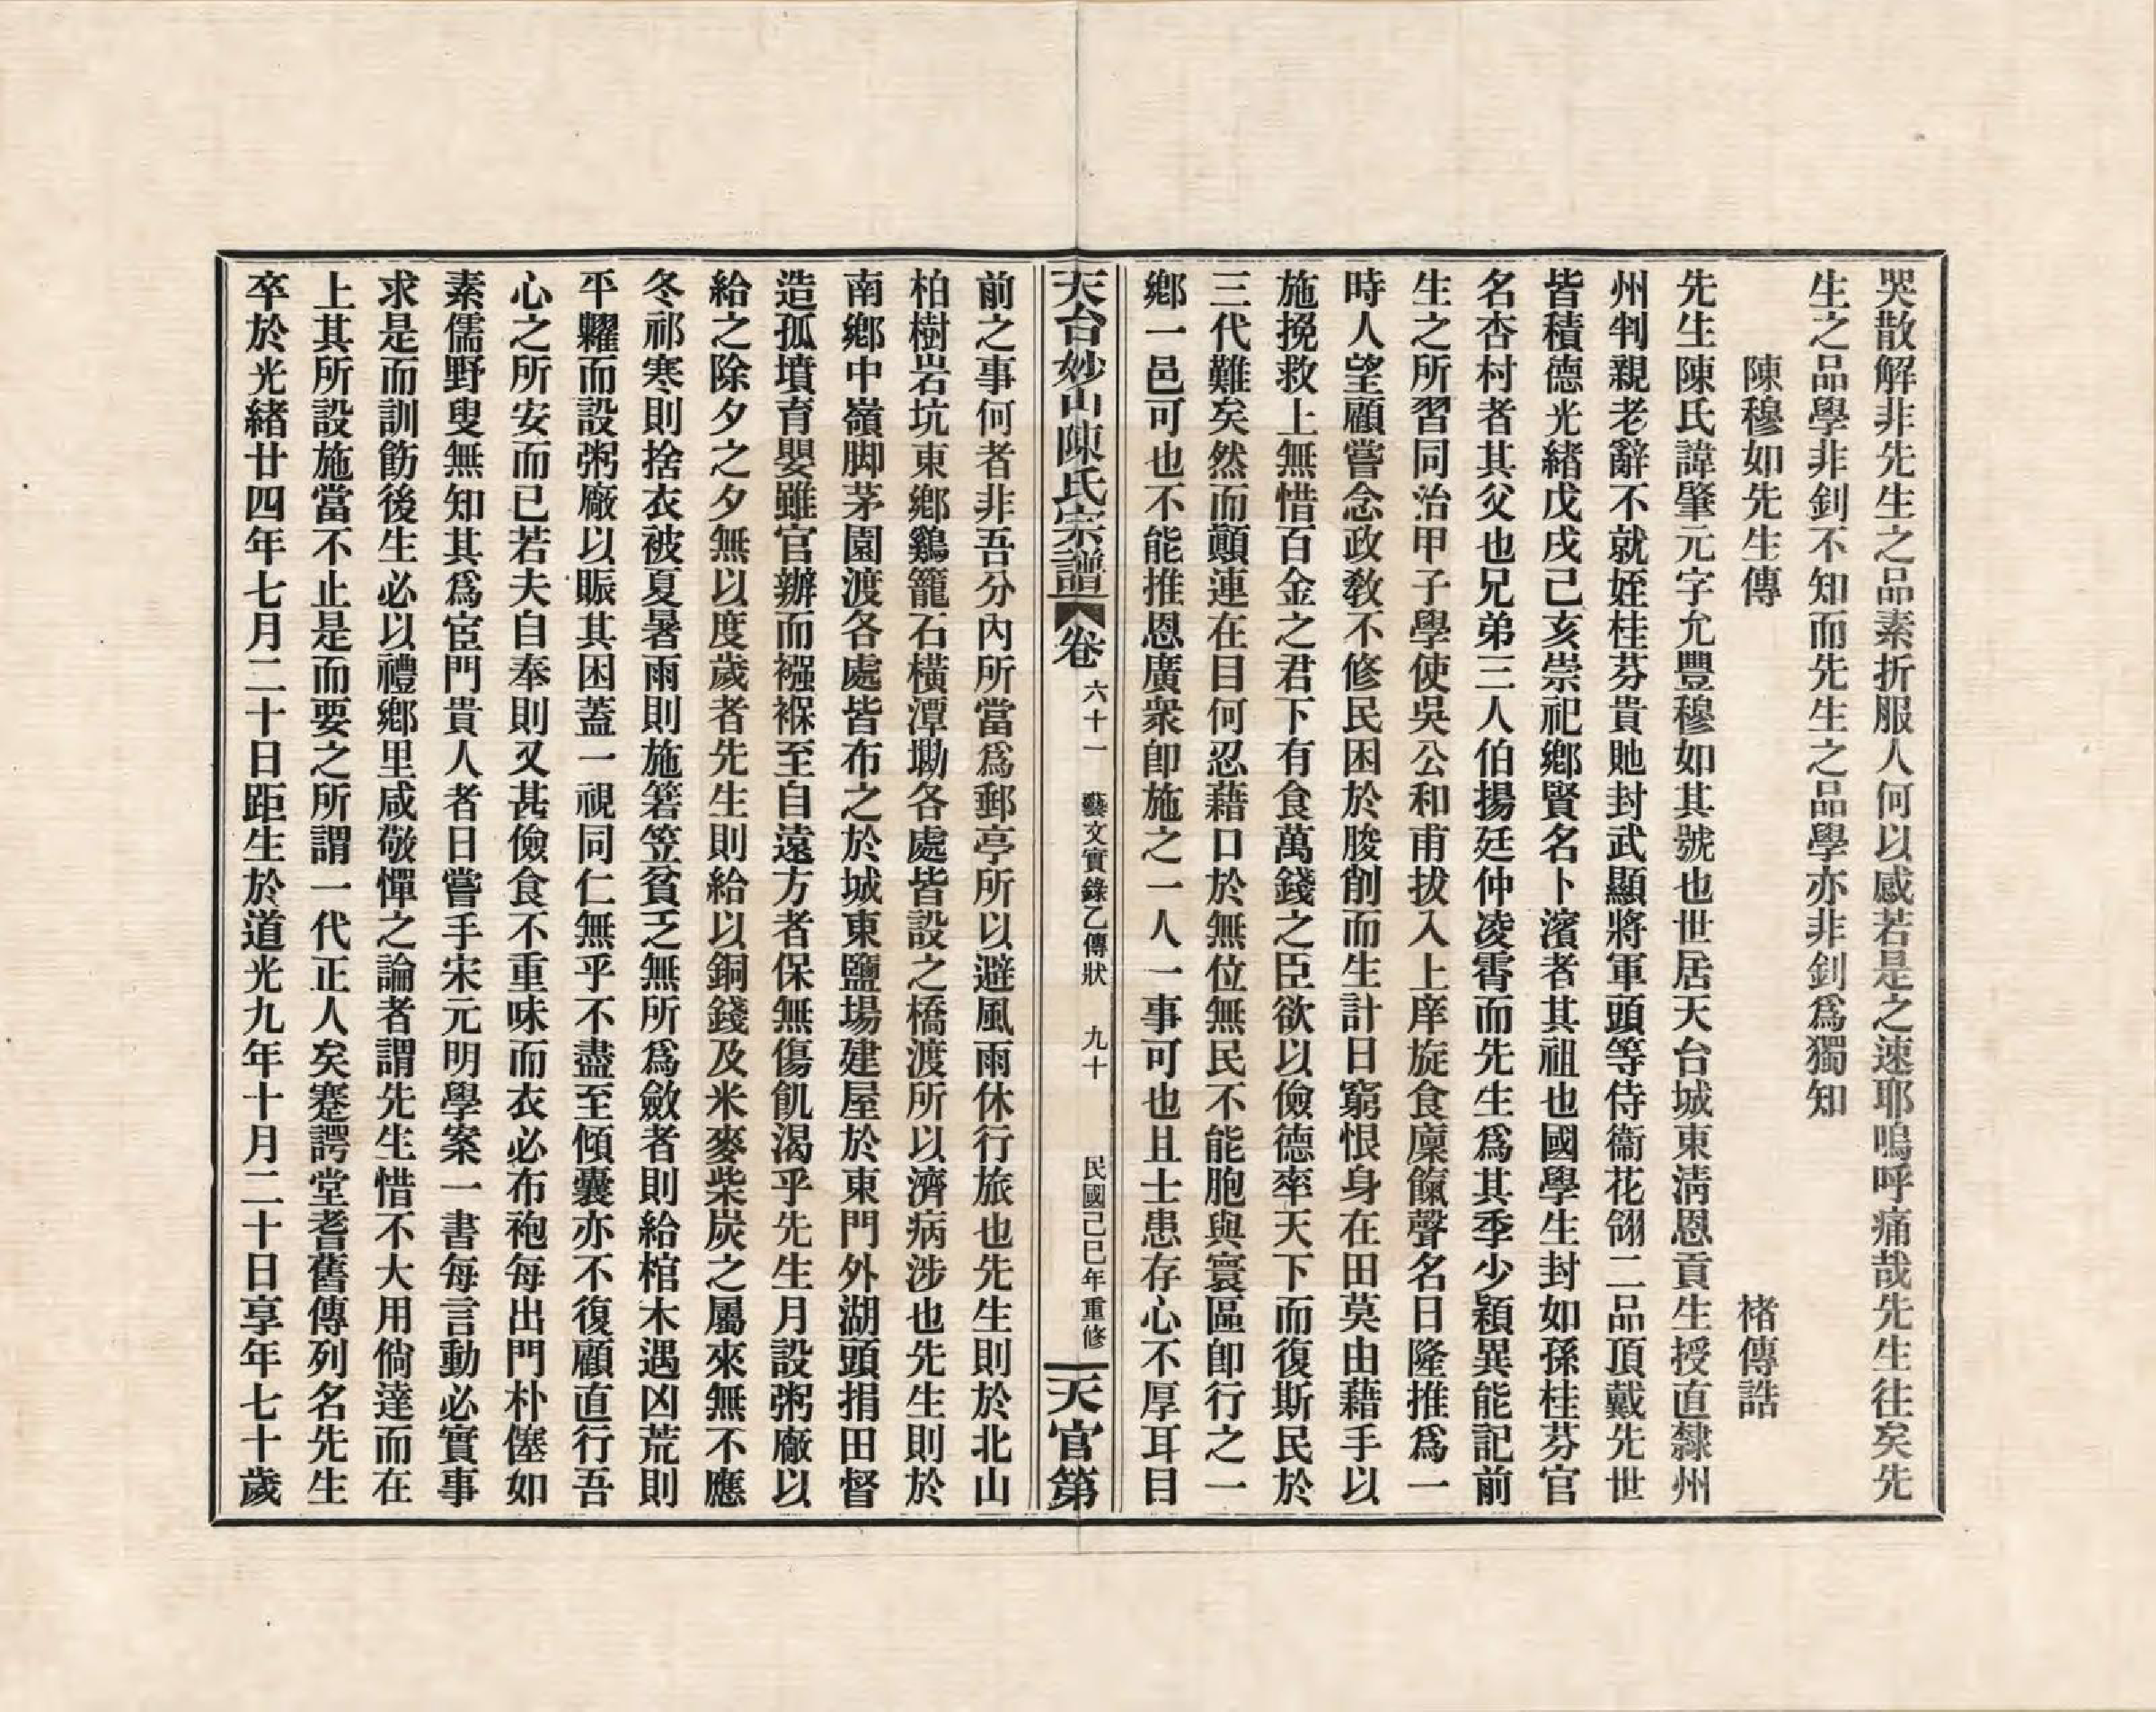 哭散解非先生之品素折服人何以感若是之速耶嗚呼痛哉先生往矣先
生之品學非釗不知而先生之品學亦非釗爲獨知
陳穆如先生傳　褚傳誥
先生陳氏諱肇元字允豐穆如其號也世居天台城東淸恩貢生授直隸州
州判親老辭不就姪桂芬貴貤封武顯將軍頭等侍衞花翎二品頂戴先世
皆積德光緒戊戌己亥崇祀鄕賢名卜濱者其祖也國學生封如孫桂芬官
名杏村者其父也兄弟三人伯揚廷仲凌霄而先生爲其季少穎異能記前
生之所習同治甲子學使吳公和甫拔入上庠旋食廩餼聲名日隆推爲一
時人望顧嘗念政敎不修民困於朘削而生計日窮恨身在田莫由藉手以
施挽救上無惜百金之君下有食萬錢之臣欲以儉德率天下而復斯民於
三代難矣然而顚連在目何忍藉口於無位無民不能胞與寰區卽行之一
鄕一邑可也不能推恩廣衆卽施之一人一事可也且士患存心不厚耳目
天台妙山陳氏宗譜　卷六十一　藝文實錄乙傳狀　九十　民國己巳年重修　天官第
前之事何者非吾分內所當爲郵亭所以避風雨休行旅也先生則於北山
柏樹岩坑東鄕鷄籠石橫潭墈各處皆設之橋渡所以濟病涉也先生則於
南鄕中嶺脚茅園渡各處皆布之於城東鹽場建屋於東門外湖頭捐田督
造孤墳育嬰雖官辦而襁褓至自遠方者保無傷飢渴乎先生月設粥廠以
給之除夕之夕無以度歲者先生則給以銅錢及米麥柴炭之屬來無不應
冬祁寒則捨衣被夏暑雨則施箬笠貧乏無所爲斂者則給棺木遇凶荒則
平糶而設粥廠以賑其困蓋一視同仁無乎不盡至傾囊亦不復顧直行吾
心之所安而已若夫自奉則又甚儉食不重味而衣必布袍每出門朴僿如
素儒野叟無知其爲宦門貴人者日嘗手宋元明學案一書每言動必實事
求是而訓飭後生必以禮鄕里咸敬憚之論者謂先生惜不大用倘達而在
上其所設施當不止是而要之所謂一代正人矣蹇諤堂耆舊傳列名先生
卒於光緒廿四年七月二十日距生於道光九年十月二十日享年七十歲